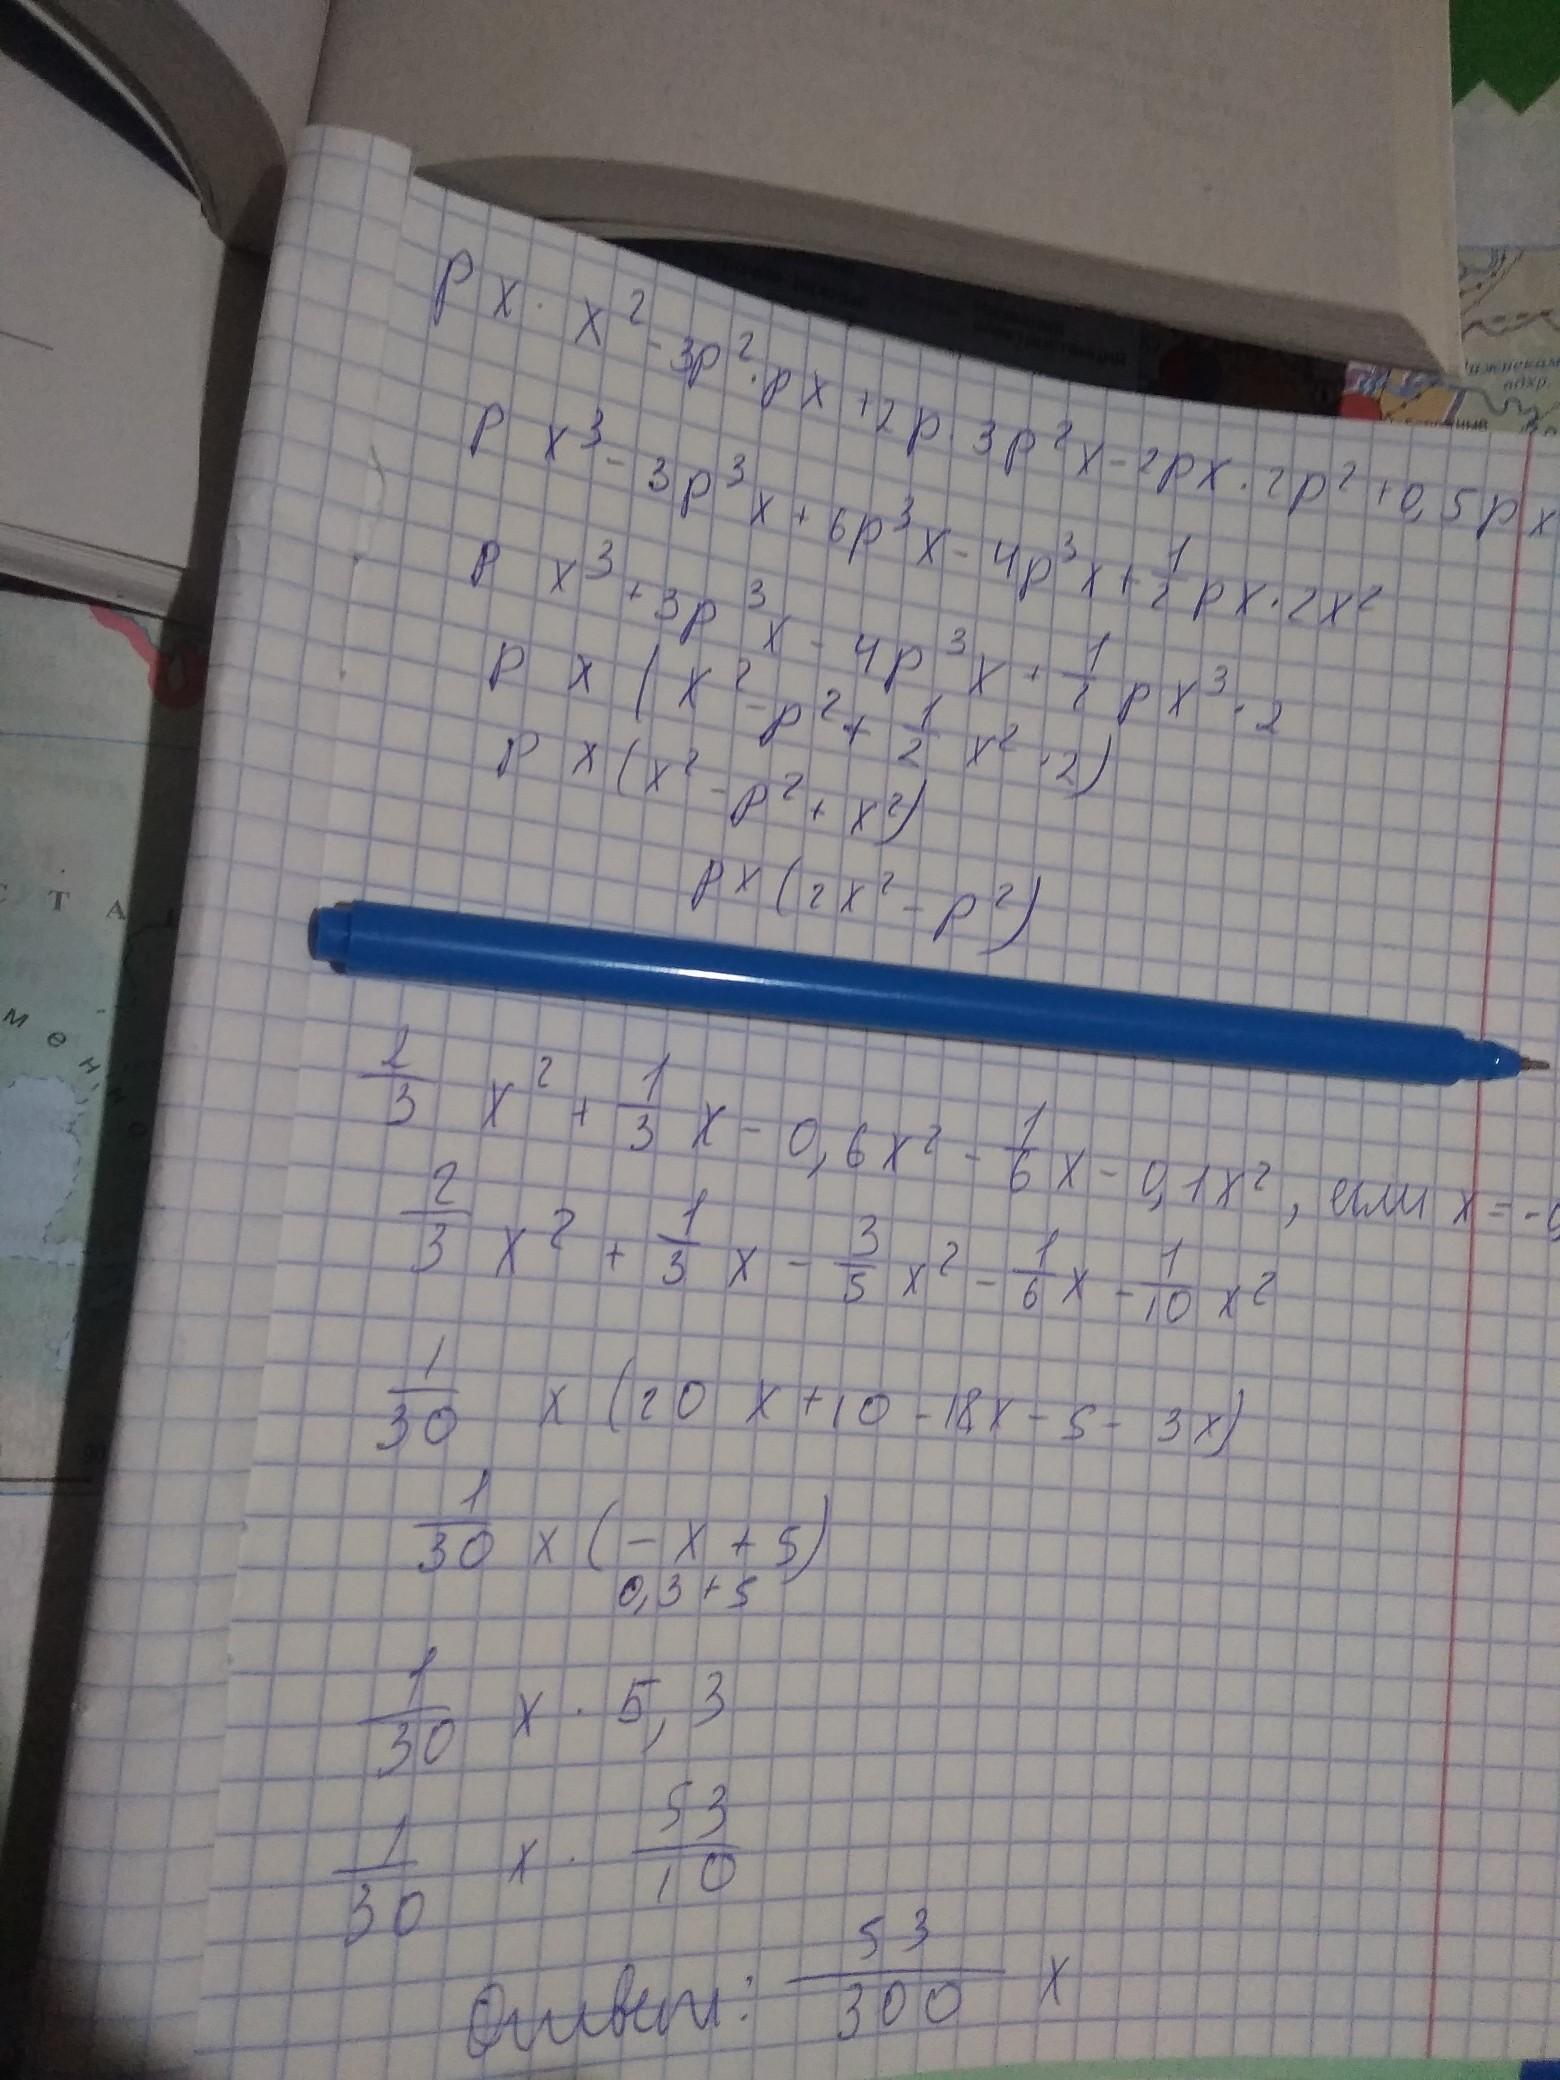 px · x² - 3p² · px + 2p · 3p²x - 2px · 2p² + 0,5px
px³ - 3p³x + 6p³x - 4p³x + 1/2 px · 2x²
px³ + 3p³x - 4p³x + 1/2 px³ · 2
px(x² - p² + 1/2 x² · 2)
px(x² - p² + x²)
px(2x² - p²)
2/3 x² + 1/3 x - 0,6x² - 1/6 x - 0,1x², если x = -0
2/3 x² + 1/3 x - 3/5 x² - 1/6 x - 1/10 x²
1/30 x (20x + 10 - 18x - 5 - 3x)
1/30 x (-x + 5)
0,3 + 5
1/30 x · 5,3
1/30 x · 53/10
Ответ: 53/300 x
С Т А